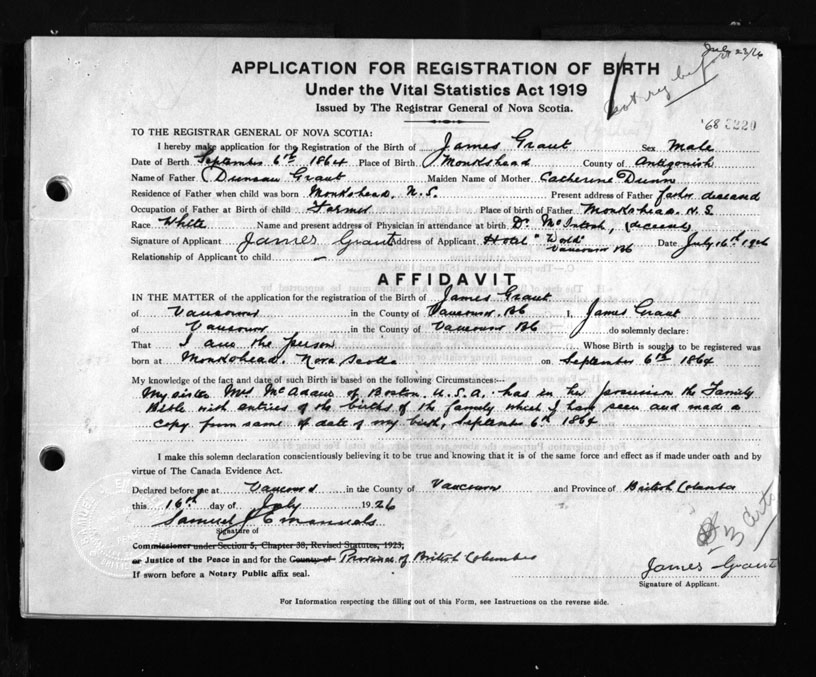 July 23/26
APPLICATION FOR REGISTRATION OF BIRTH
Under the Vital Statistics Act 1919
Issued by The Registrar General of Nova Scotia.
'68 3220
TO THE REGISTRAR GENERAL OF NOVA SCOTIA:
I hereby make application for the Registration of the Birth of James Grant Sex Male
Date of Birth September 6th 1864 Place of Birth Monkshead County of Antigonish
Name of Father Duncan Grant Maiden Name of Mother Catherine Dunn
Residence of Father when child was born Monkshead, N.S. Present address of Father father deceased
Occupation of Father at Birth of child Farmer Place of birth of Father Monkshead. N.S
Race White Name and present address of Physician in attendance at birth Dr McIntosh, (deceased)
Signature of Applicant James Grant Address of Applicant Hotel "World" Vancouver BC Date July 16th 1926
Relationship of Applicant to child —
AFFIDAVIT
IN THE MATTER of the application for the registration of the Birth of James Grant
of Vancouver in the County of Vancouver. BC I, James Grant
of Vancouver in the County of Vancouver BC do solemnly declare:
That I am the person Whose Birth is sought to be registered was
born at Monkshead. Nova Scotia on September 6th 1864
My knowledge of the fact and date of such Birth is based on the following Circumstances:--
My sister Mrs McAdam of Boston U.S.A. has in her possession the Family
Bible with entries of the births of the family which I have seen and made a
copy from same of date of my birth, September 6th 1864
I make this solemn declaration conscientiously believing it to be true and knowing that it is of the same force and effect as if made under oath and by
virtue of The Canada Evidence Act.
Declared before me at Vancouver in the County of Vancouver and Province of British Columbia
this 16th day of July 1926
Samuel J Emanuels
Signature of
Commissioner under Section 5, Chapter 38, Revised Statutes, 1923;
or Justice of the Peace in and for the County of Province of British Columbia
If sworn before a Notary Public affix seal.
James Grant
Signature of Applicant.
For Information respecting the filling out of this Form, see Instructions on the reverse side.